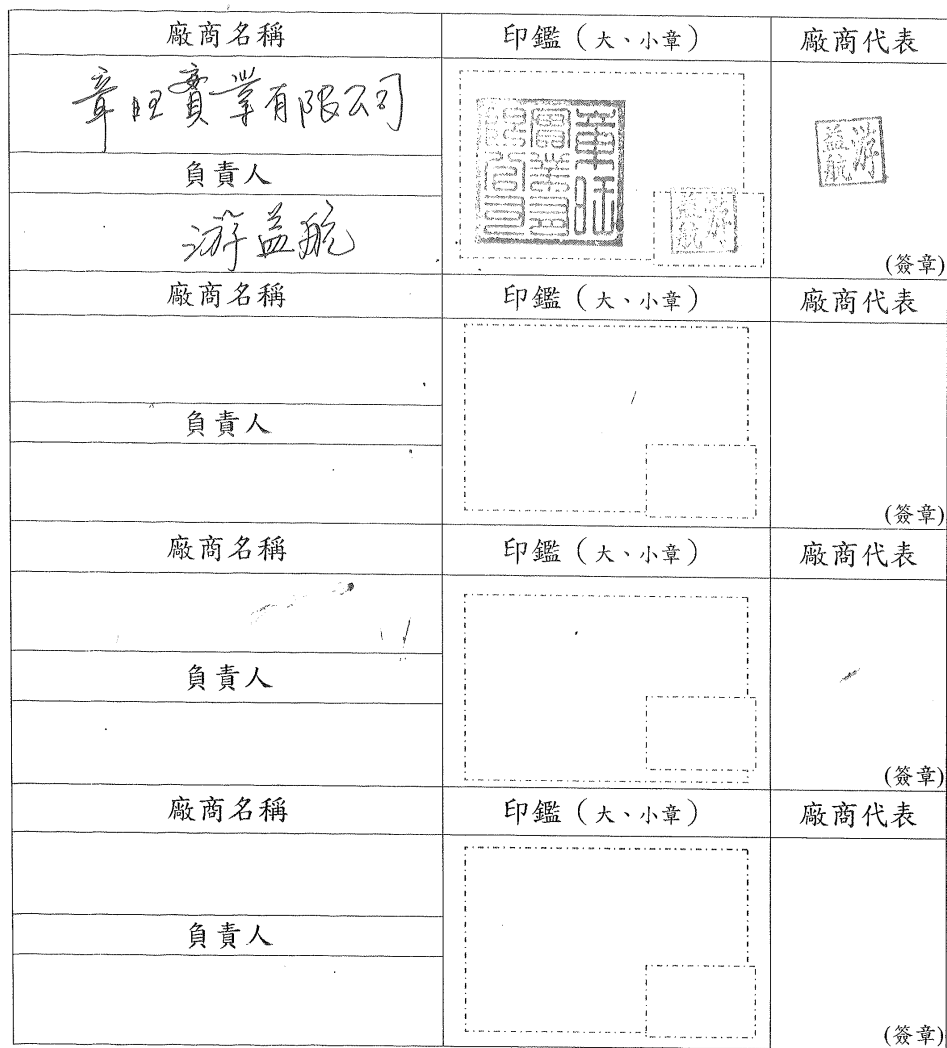 廠商名稱 印鑑（大、小章） 廠商代表
章旺實業有限公司
章旺實業有限公司
游益航
游益航
負責人
游益航
(簽章)
廠商名稱 印鑑（大、小章） 廠商代表
負責人
(簽章)
廠商名稱 印鑑（大、小章） 廠商代表
負責人
(簽章)
廠商名稱 印鑑（大、小章） 廠商代表
負責人
(簽章)